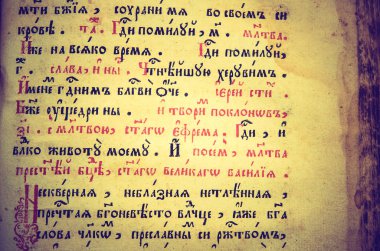 мт҃и бж҃їѧ, сохрани мѧ во своемъ си
кровѣ. та. Гд҇и помилуй, м҃. мл҃тва.
И҆же на всѧко времѧ. Гд҇и помилуй,
г҃. слава, и ны҃. Чтⷭ҇нѣйшую херувимъ.
Именемъ гд҇нимъ бл҃гви ѻ҆́ч҃е. і҆ерей ст҃и.
Бж҃е ѹ҆щедри ны. и твори поклоновъ,
з҃і. с мл҃твою, ст҃агѡ є҆фрема. Гд҇и, и
вл҃ко животу̀ моемѹ̀. И поемъ, мл҃тва
прест҃ѣй бц҃ѣ, ст҃агѡ великагѡ василїѧ.
Нескверная, неблазная нетлѣнная,
пречⷭ҇таѧ бг҃оневѣсто вл҃чце, ꙗ҆́же бг҃а
слова чл҃кѡ, преславны си рж҇твомъ,